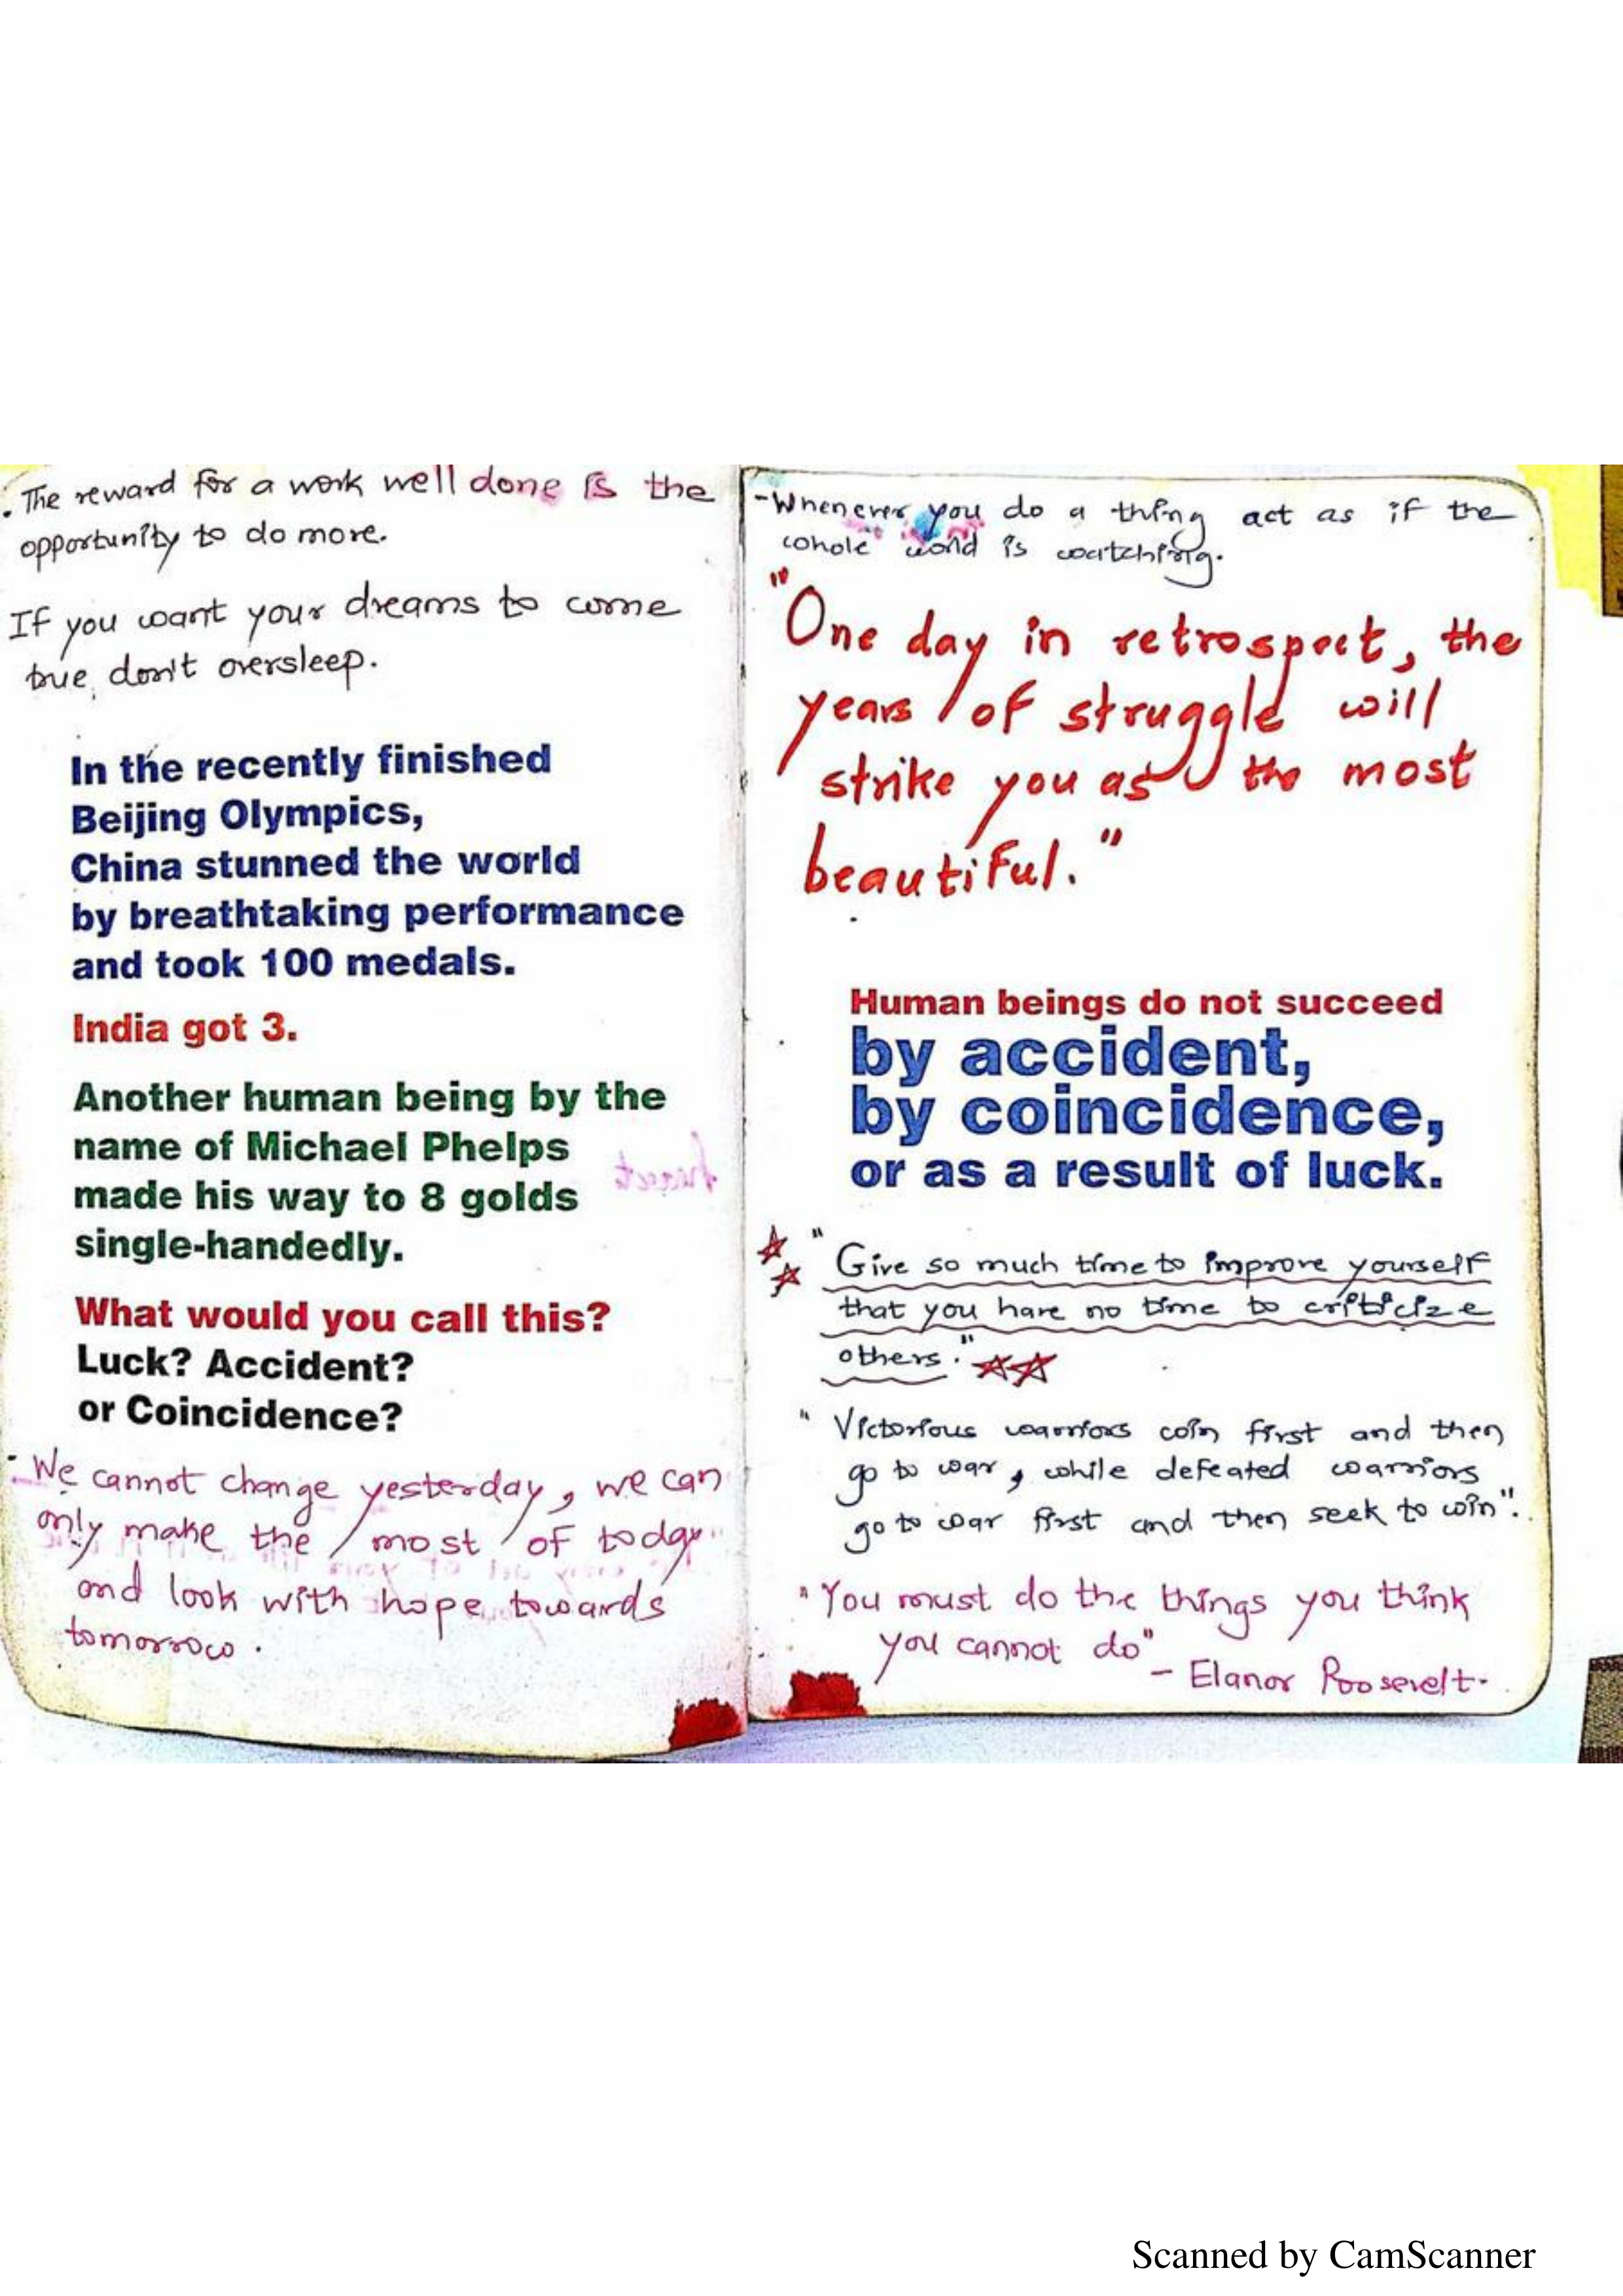 . The reward for a work well done is the
opportunity to do more.
If you want your dreams to come
true, don't oversleep.
In the recently finished
Beijing Olympics,
China stunned the world
by breathtaking performance
and took 100 medals.
India got 3.
Another human being by the
name of Michael Phelps
made his way to 8 golds
single-handedly.
What would you call this?
Luck? Accident?
or Coincidence?
- We cannot change yesterday, we can
only make the most of today
and look with hope towards
tomorrow.
- Whenever you do a thing act as if the
whole world is watching.
"One day in retrospect, the
years of struggle will
strike you as the most
beautiful."
Human beings do not succeed
by accident,
by coincidence,
or as a result of luck.
"Give so much time to improve yourself
that you have no time to criticize
others."
"Victorious warriors win first and then
go to war, while defeated warriors
go to war first and then seek to win".
"You must do the things you think
you cannot do"
- Elanor Roosevelt.
Scanned by CamScanner